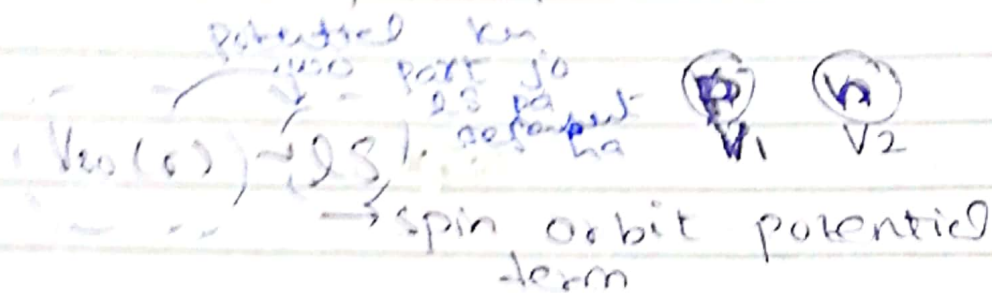 potential ka
part jo
p n
LS pa
dependent
ha
V1 V2
Vso(r) LS
→ spin orbit potential
term